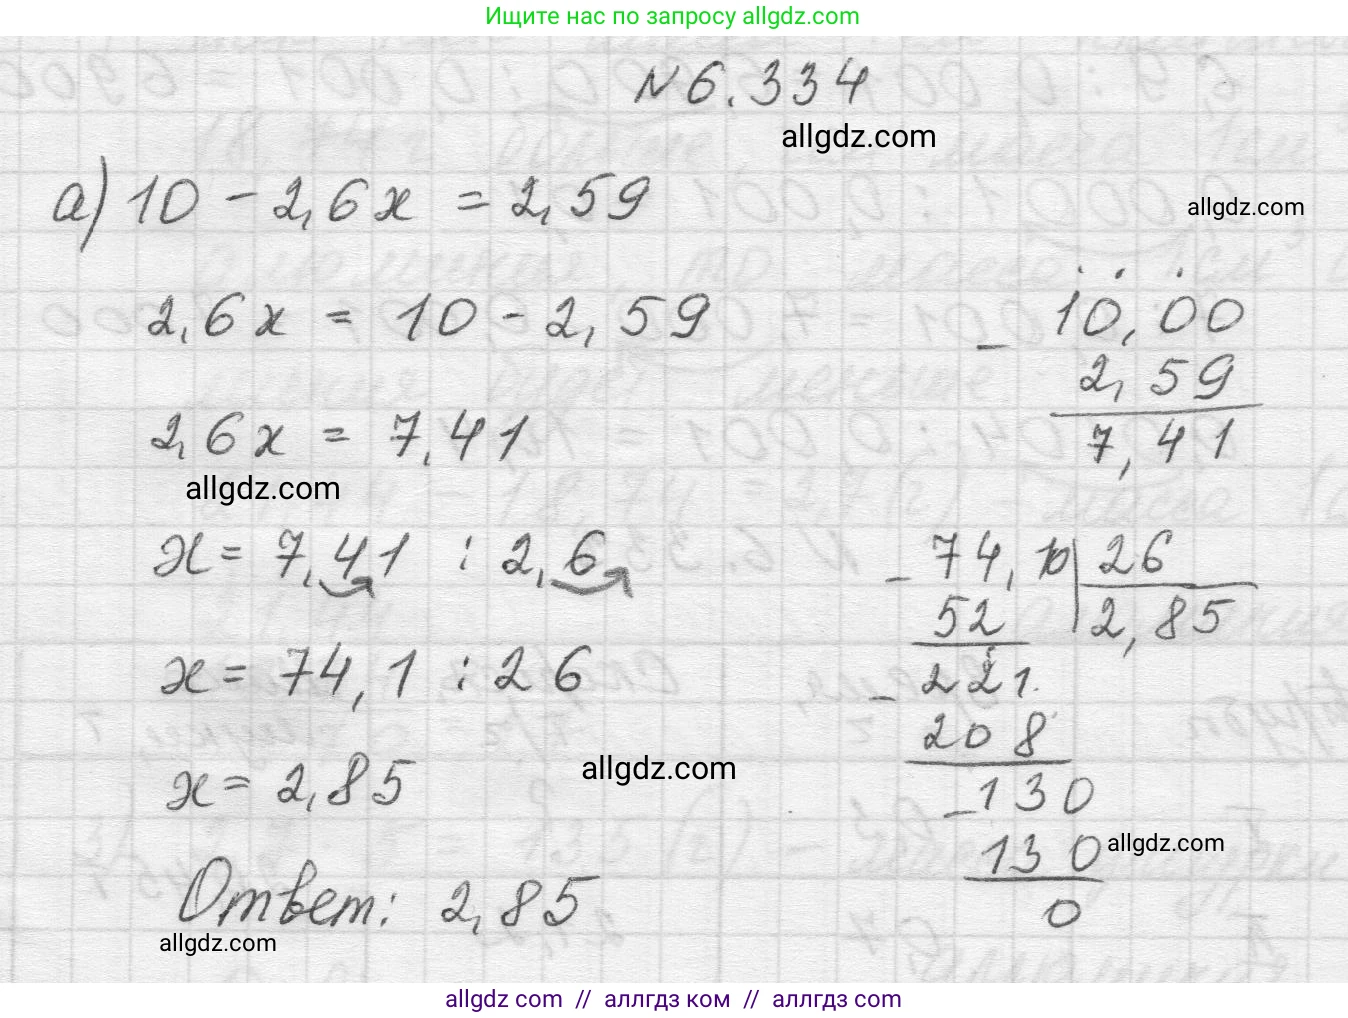 Ищите нас по запросу allgdz.com
№6.334
allgdz.com
а) 10 - 2,6x = 2,59
allgdz.com
2,6x = 10 - 2,59
2,6x = 7,41
10,00
- 2,59
7,41
allgdz.com
x = 7,41 : 2,6
x = 74,1 : 26
x = 2,85
- 74,10 | 26
52 2,85
- 221
208
- 130
130
0
allgdz.com
allgdz.com
Ответ: 2,85
allgdz.com
allgdz com // аллгдз ком // аллгдз com